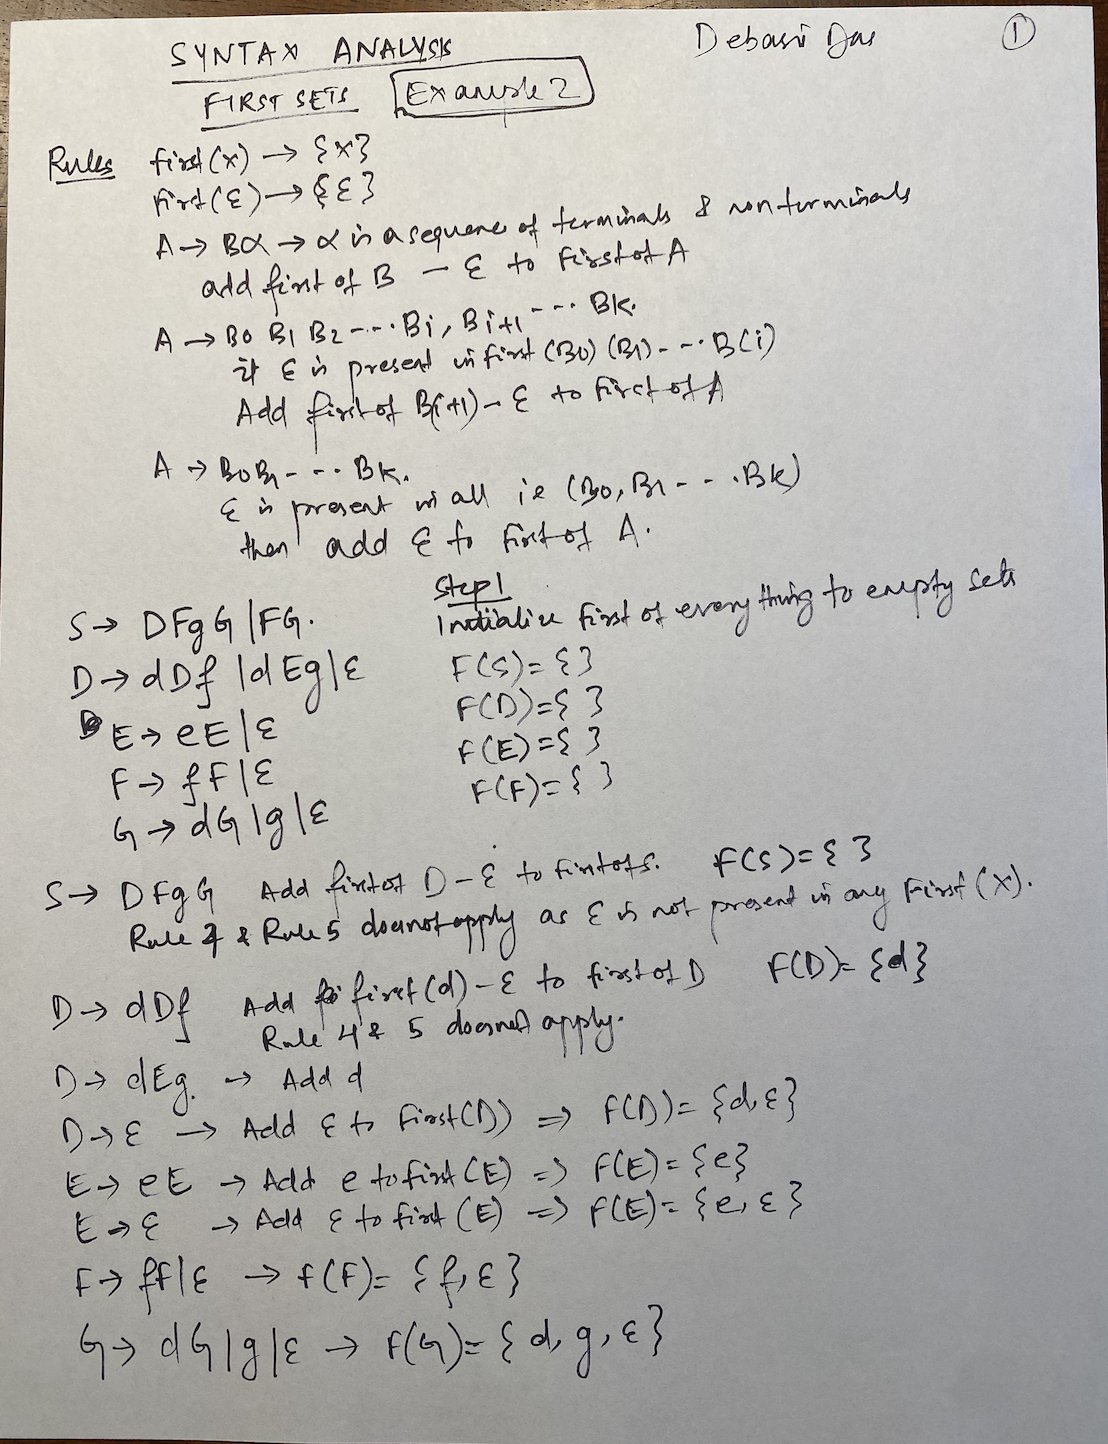 SYNTAX ANALYSIS Debasis Das 1
FIRST SETS Example 2
Rules first(x) → {x}
first(ε) → {ε}
A → Bα → α is a sequence of terminals & non terminals
add first of B - ε to First of A
A → B0 B1 B2 ---- Bi, Bi+1 ---- Bk.
if ε is present in first (B0) (B1) - - · B(i)
Add first of B(i+1) - ε to First of A
A → B0B1 - - - · Bk.
ε is present in all ie (B0, B1 - - - · Bk)
then add ε to First of A.
Step 1
S → DFgG | FG. Initialize first of every thing to empty sets
D → dDf | dEg | ε F(S) = { }
E → eE | ε F(D) = { }
F → fF | ε F(E) = { }
G → dG | g | ε F(F) = { }
S → DFgG Add first of D - ε to first of S. F(S) = { }
Rule 4 & Rule 5 doesnot apply as ε is not present in any First (X).
D → dDf Add first (d) - ε to first of D F(D) = {d}
Rule 4 & 5 doesnot apply.
D → dEg. → Add d
D → ε → Add ε to First(D) ⇒ F(D) = {d, ε}
E → eE → Add e to first (E) ⇒ F(E) = {e}
E → ε → Add ε to first (E) ⇒ F(E) = {e, ε}
F → fF | ε → f(F) = {f, ε}
G → dG | g | ε → F(G) = {d, g, ε}